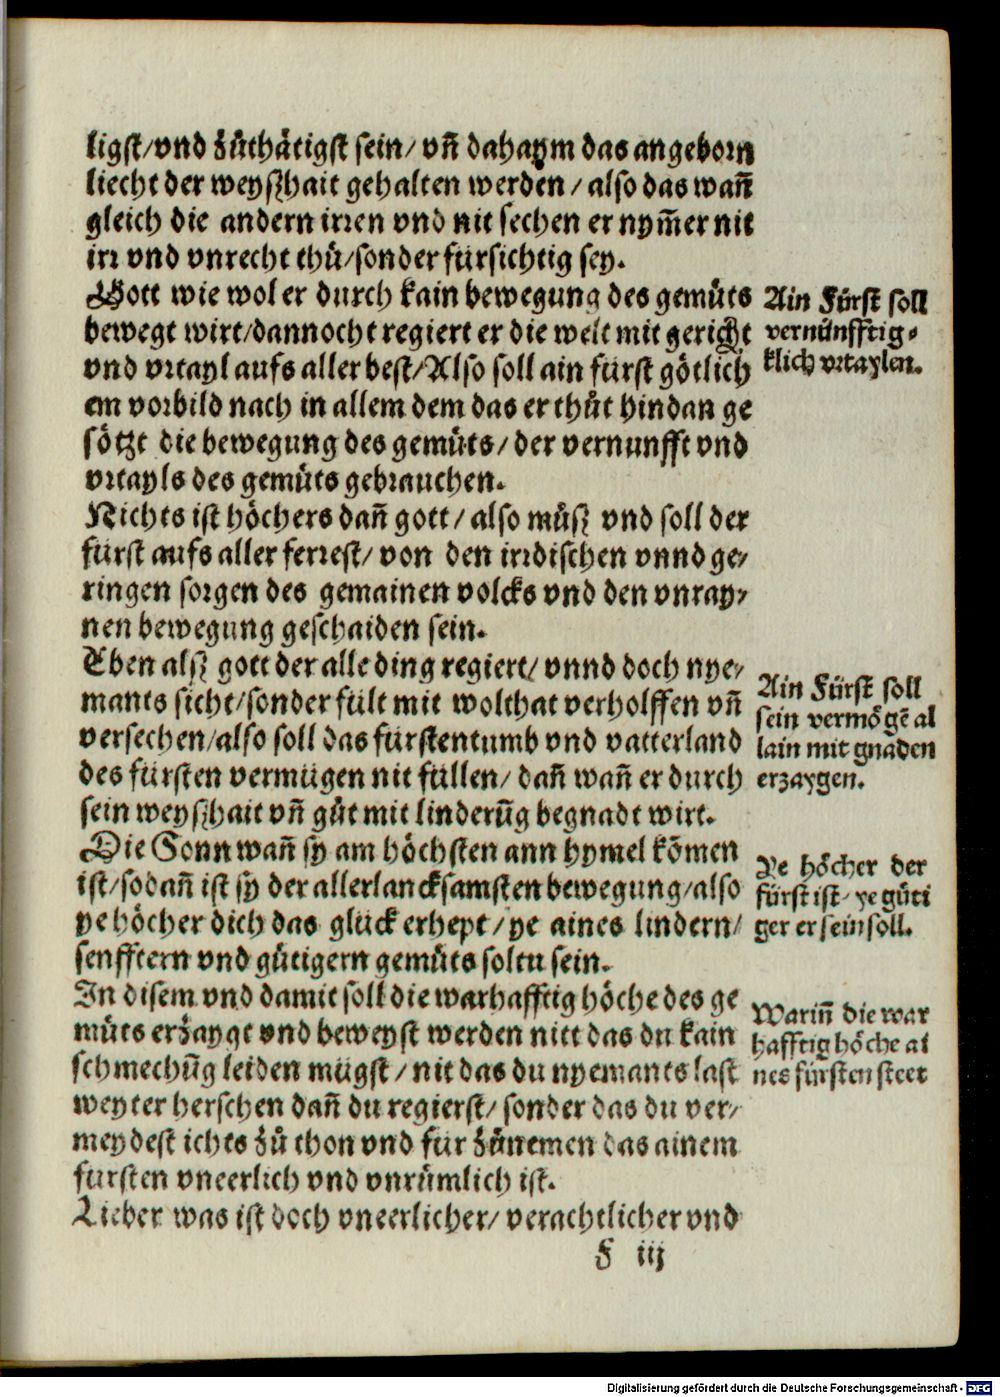 ligst/vnd zůthätigst sein/ vn̄ dahaym das angeborn
liecht der weyszhait gehalten werden / also das wan̄
gleich die andern irren vnd nit sechen er nym̄er nit
irr vnd vnrecht thů/sonder fürsichtig sey.
Gott wie wol er durch kain bewegung des gemůts
bewegt wirt/dannocht regiert er die welt mit gericht
vnd vrtayl aufs aller best/Also soll ain fürst götlich
em vorbild nach in allem dem das er thůt hindan ge
sötzt die bewegung des gemůts/ der vernunfft vnd
vrtayls des gemůts gebrauchen.
Ain Fürst soll
vernünfftig-
klich vrtaylen.
Nichts ist höchers dan̄ gott/ also můsz vnd soll der
fürst aufs aller ferrest/ von den irrdischen vnnd ge/
ringen sorgen des gemainen volcks vnd den vnray/
nen bewegung geschaiden sein.
Eben alsz gott der alle ding regiert/ vnnd doch nye/
mants sicht/sonder fült mit wolthat verholffen vn̄
versechen/also soll das fürstentumb vnd vatterland
des fürsten vermügen nit füllen/ dan̄ wan̄ er durch
sein weyszhait vn̄ gůt mit linderūg begnadt wirt.
Ain Fürst soll
sein vermögē al
lain mit gnaden
erzaygen.
Die Sonn wan̄ sy am höchsten ann hymel kōmen
ist/sodan̄ ist sy der allerlancksamsten bewegung/also
ye höcher dich das glück erhept/ye aines lindern/
senfftern vnd gütigern gemůts soltu sein.
Ye höcher der
fürst ist/ ye güti
ger er sein soll.
In disem vnd damit soll die warhafftig höche des ge
můts erzaygt vnd beweyst werden nitt das du kain
schmechūg leiden mügst/nit das du nyemants last
weyter herschen dan̄ du regierst/ sonder das du ver/
meydest ichts zů thon vnd für zůnemen das ainem
fürsten vneerlich vnd vnrümlich ist.
Warin̄ die war
hafftig höche ai
nes fürsten steet
Lieber was ist doch vneerlicher/ verachtlicher vnd
F iij
Digitalisierung gefördert durch die Deutsche Forschungsgemeinschaft - DFG